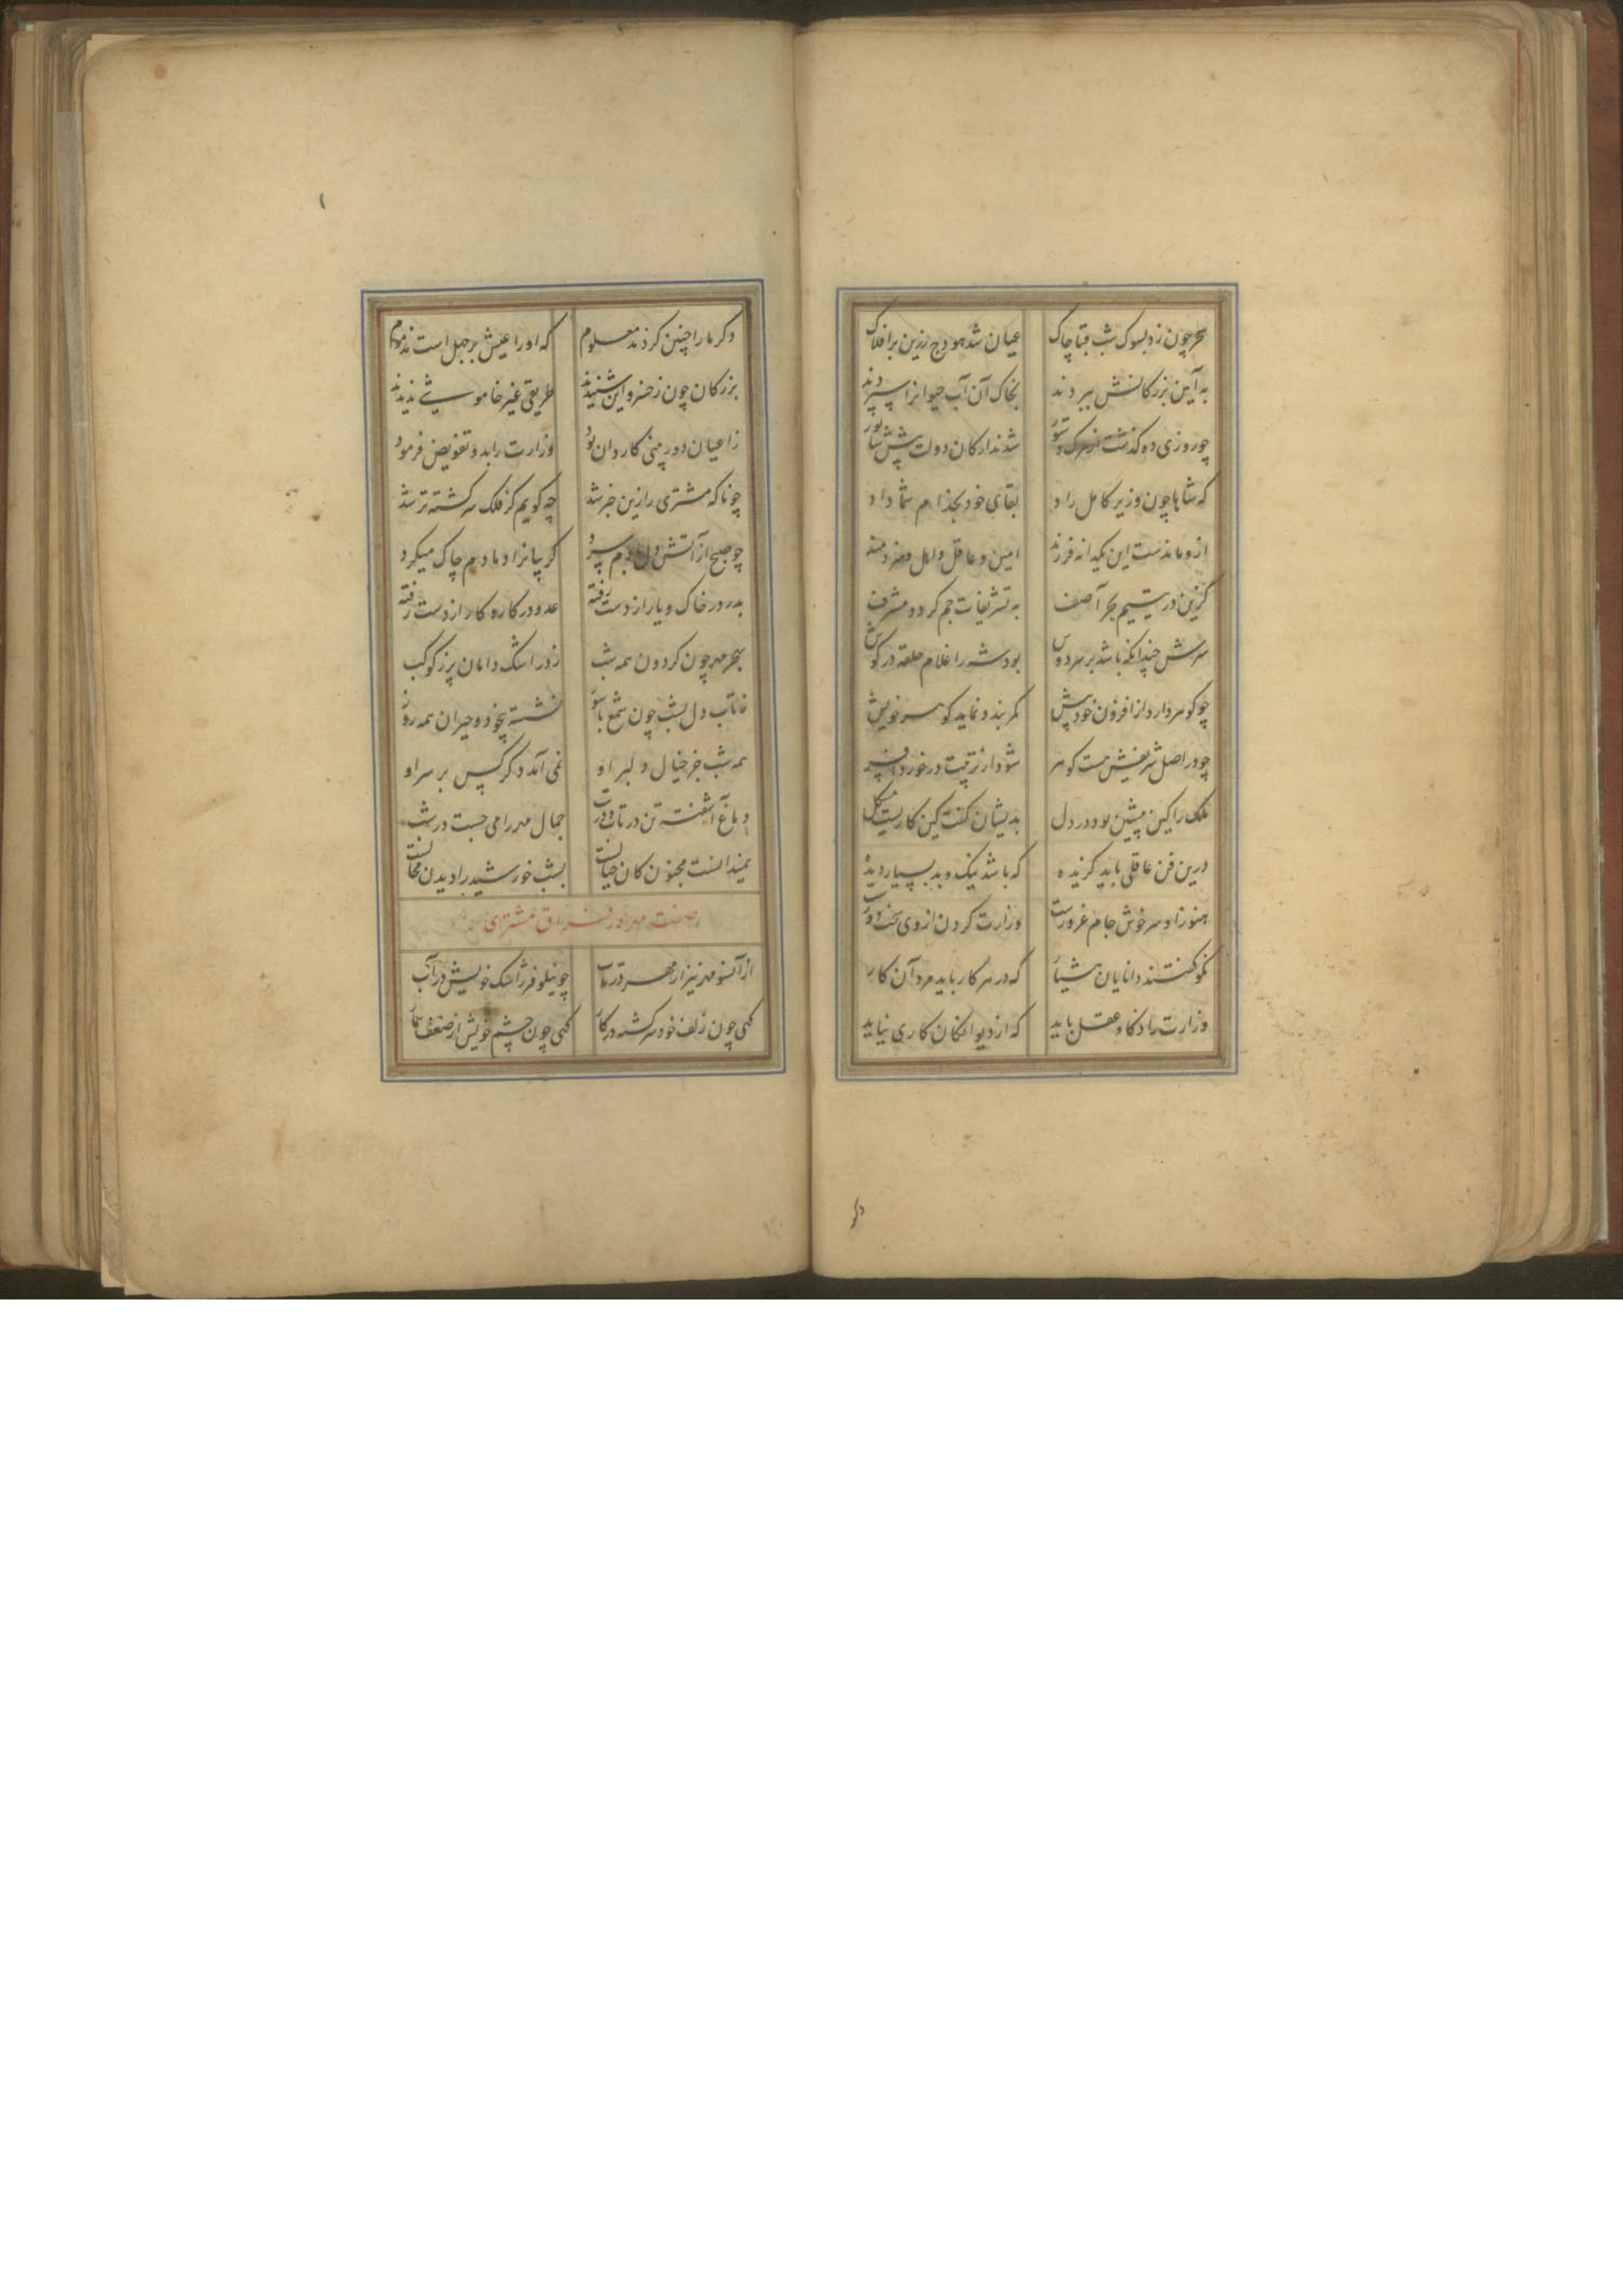 سحر چون زد بسوک شب قبا چاک عیان شد هودج زرین بر افلاک
به آیین بزرکانش ببردند بخاک آن آب حیوانرا سپردند
چو روزی ده کذشت از مرک دستور شدند ارکان دولت پیش شاپور
که شاها چون وزیر کامل راد بقای خود بخدام شما داد
ازو ماندست این یکدانه فرزند امین و عاقل و اهل و هنرمند
کزین در یتیم بحر آصف به تشریفات جم کردد مشرف
سرش چندانکه باشد بر سر دوش بود شه را غلام حلقه در کوش
چو کوهر دارد از افزون خود پیش کمر بندد نماید کوهر خویش
چو در اصل شریفش هست کوهر شود از تربیت در خورد افسر
ملک را کین پیشین بود در دل بدیشان کفت کین کاریست مشکل
درین فن عاقلی باید کزیده که باشد نیک و بد بسیار دیده
هنوز او سرخوش جام غرورست وزارت کردن از وی سخت دورست
نکو کفتند دانایان هشیار که در هر کار باید مرد آن کار
وزارت را ذکا و عقل باید که از دیوانکان کاری نیاید
دکر
دکر ما را چنین کردند معلوم که او را عیش بر جهل است مذموم
بزرکان چون ز خسرو این شنیدند طریقی غیر خاموشی ندیدند
ز اعیان دوربینی کاردان بود وزارت را بدو تفویض فرمود
چو ناکه مشتری را زین خبر شد چه کویم کز فلک سرکشته تر شد
چو صبح از آتش دل دم سرد کریبانرا دمادم چاک میکرد
پدر در خاک و یار از دست رفته عدو در کار و کار از دست رفته
بهجر مهر چون کردون همه شب ز در اشک دامان پر ز کوکب
ز تاب دل بشب چون شمع با سوز نشسته بیخود و حیران همه روز
همه شب جز خیال دلبر او نمی آمد دکر کس بر سر او
دماغ آشفته تن در تاب و در تب جمال مهر را می جست در شب
نمیدانست مجنون کان خیالست بشب خورشید را دیدن محالست
صفت مهر در فراق مشتری
از آنسو مهر نیز از مهر در تاب چو نیلوفر ز اشک خویش در آب
کهی چون زلف خود سرکشته در کار کهی چون چشم خویش از ضعف بیمار